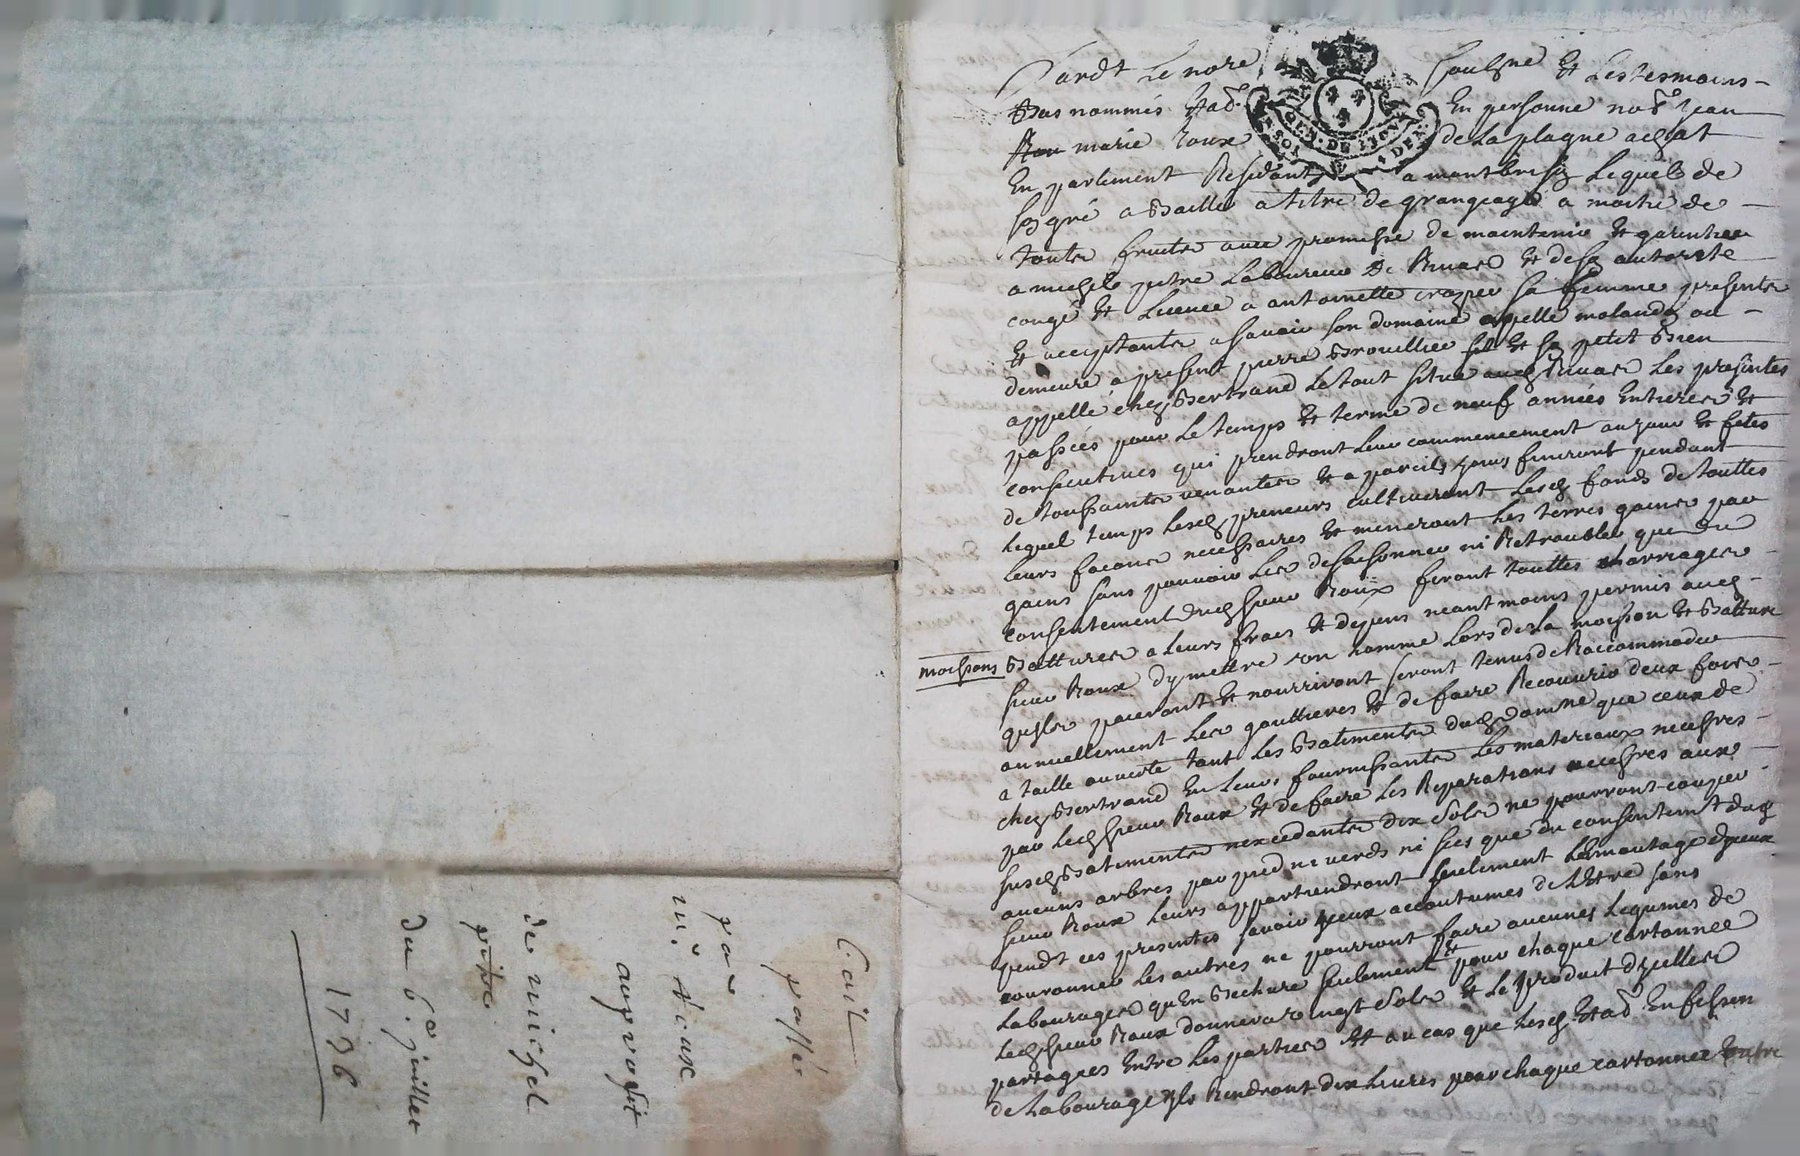 Pardt Le nore soubsne Et Les tesmoins
Bas nommés Estab. En personne no.e jean
marie Roux de La plagne advocat
En parlement Residant a montbrison Lequel de
son gré a Baillé a titre de grangeage a moitié de
touts fruits avec promesse de maintenir Et garentir
a michel pitre Laboureur de Et de son autorité
congé Et Licence a antoinette crozier sa femme presents
Et acceptants asavoir son domaine appellé malanda ou
demeure a present pierre Brouillier Et petit Bien
appellé chez Bertrand Le tout situé Les presentes
passées pour Le temps Et terme de neuf années Entieres Et
consecutives qui prendront Leur commencement au jour Et fetes
de toussaints venantes Et a pareils jours finiront pendant
Lequel temps Lesd preneurs cultiveront Lesd fonds de touttes
Leurs façons necessaires Et meneront Les terres gains par
gains sans pouvoir Les desaisonner ni Retroubler que du
consentement dud sieur Roux feront touttes charriages
moissons Battures a Leurs frais Et depens neantmoins permis aud
sieur Roux dy mettre son homme Lors de La moisson Et Batture
quils payeront Et nourriront seront tenus de Raccommoder
annuellement Les gouttieres Et de faire Recouvrir deux fois
a taille ouverte tant Les Batiments dud domne que ceux de
chez Bertrand En Leurs fournissants Les materiaux necessres
par Led sieur Roux Et de faire Les Reparations necessres aux
susd Batiments nexcedants dix sols ne pourront couper
aucuns arbres par pied ni verds ni secs que du consentemt dud
sieur Roux Leurs appartiendront seulement
pendt ces presentes savoir ceux accoutumes de Letre sans
couronner Les autres ne pourront faire aucunes Legumes de
Labourages quEn Bechure seulement Et pour chaque cartonnee
Led sieur Roux donnera vingt sols Et Le produit dycelles
partagées Entre Les parties Et au cas que Lesd Estab. En fissen
de Labourage ils Rendront dix Livres pour chaque cartonnee
Bail
passé
par
m.e Roux
au proffit
de michel
pitre
du 6.e juillet
1776